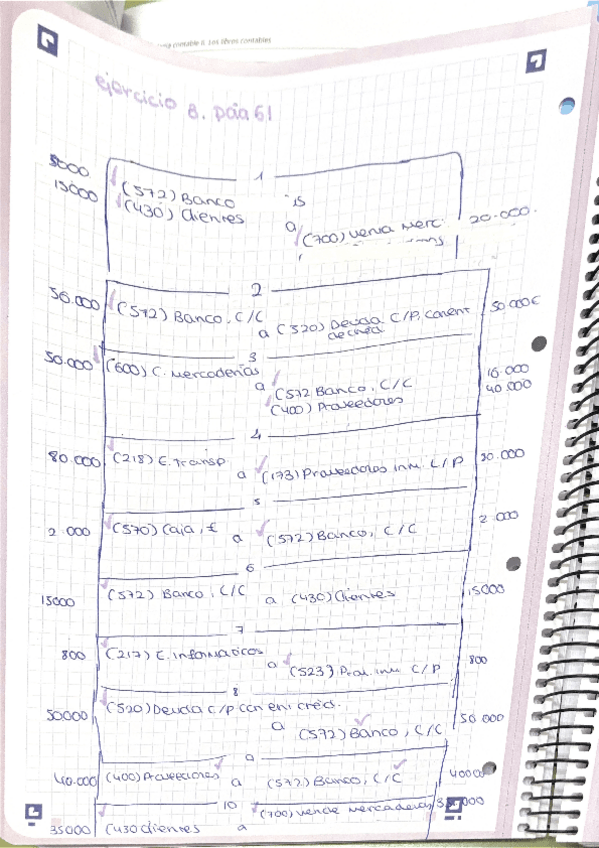 contable 6. Los libros contables
ejercicio 8. páia 61
1
5000 (572) Banco
15000 (430) Clientes
a (700) venta Merc. 20.000.
2
50.000 (572) Banco, C/C
a (520) Deuda C/P. 50.000€
3
50.000 (600) C. Mercaderias
a (572 Banco, C/C 10.000
(400) Proveedores 40.000
4
(218) E. Transp.
a (173) Proveedores inm. L/P
5
2.000 (570) Caja, € a (572) Banco, C/C 2.000
6
15000 (572) Banco, C/C a (430) Clientes 15000
7
800 (217) E. informaticos
a (523) Prov. inm C/P 800
8
50000 (520) Deuda C/P con ent. cred.
a (572) Banco, C/C 50.000
9
40.000 (400) Proveedores a (572) Banco, C/C
10
35000 (430 clientes a (700) vende mercaderias